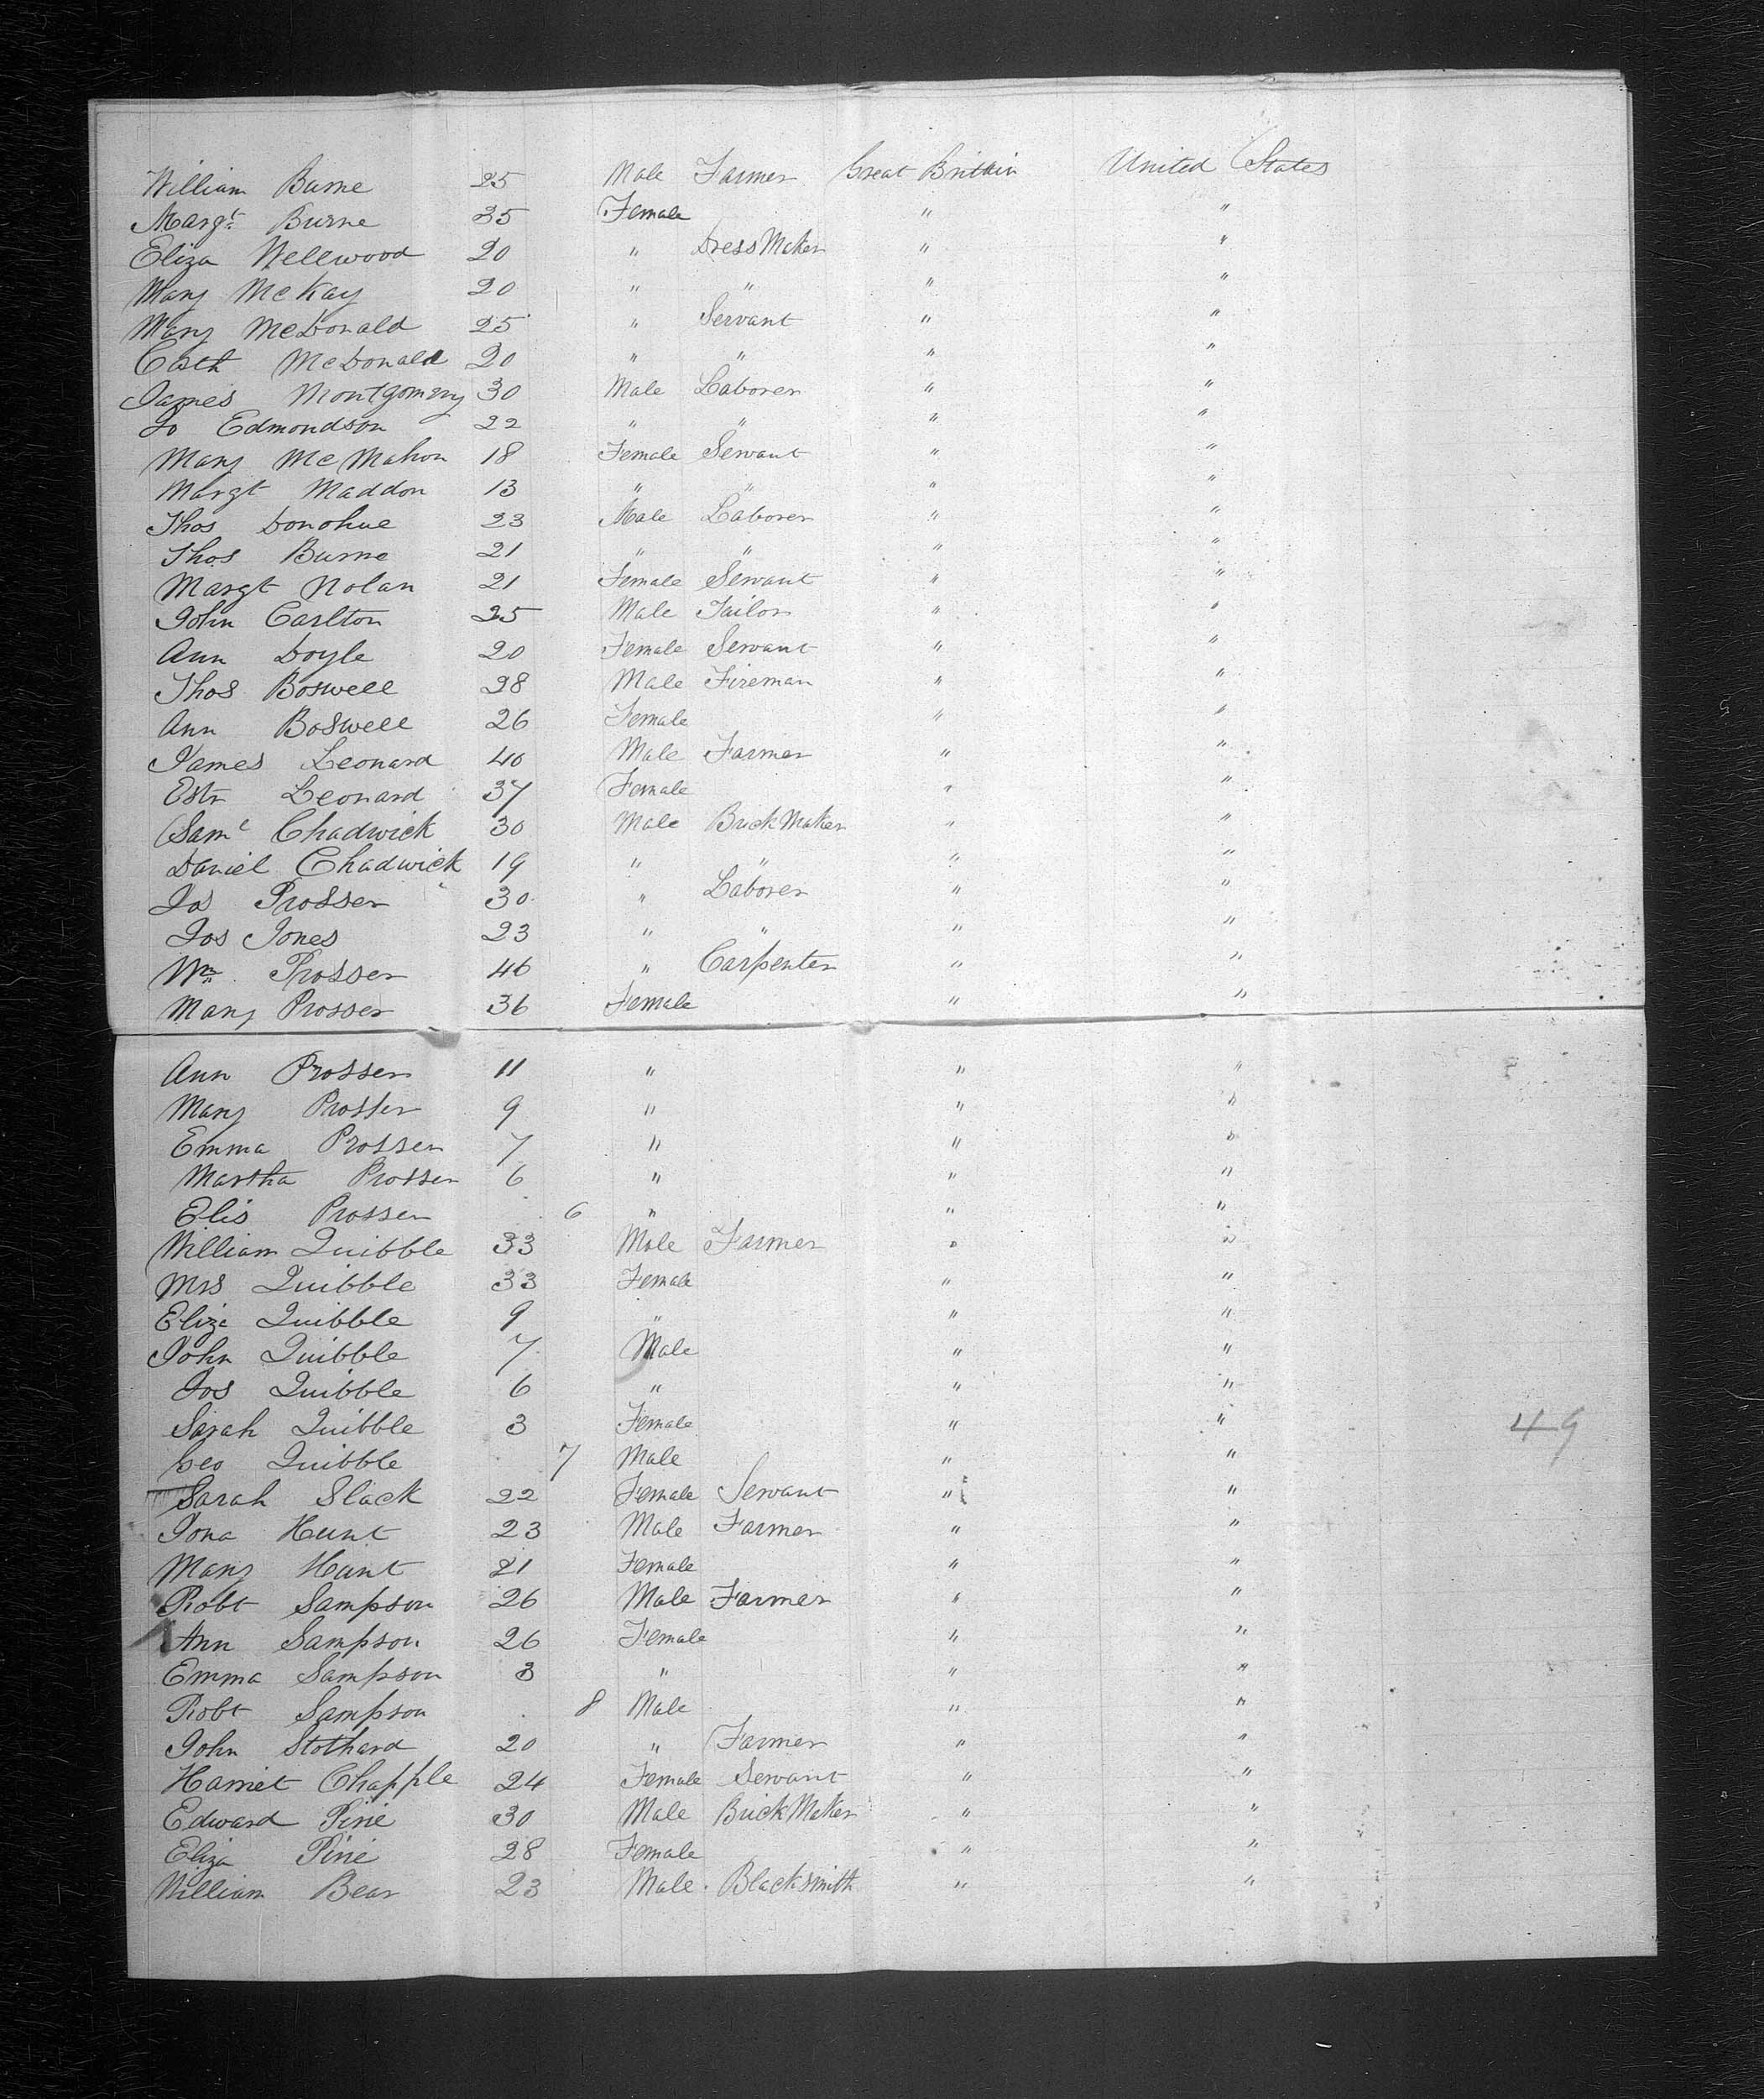 William Burne 25 Male Farmer Great Britain United States
Margt. Burne 35 Female " "
Eliza Wellwood 20 " Dress Maker " "
Mary McKay 20 " " " "
Mary McDonald 25 " Servant " "
Cath McDonald 20 " " " "
James Montgomery 30 Male Laborer " "
Jo Edmondson 22 " " " "
Mary McMahon 18 Female Servant " "
Margt Maddon 13 " " " "
Thos Donohue 23 Male Laborer " "
Thos Burne 21 " " " "
Margt Nolan 21 Female Servant " "
John Carlton 25 Male Tailor " "
Ann Doyle 20 Female Servant " "
Thos Boswell 28 Male Fireman " "
Ann Boswell 26 Female " "
James Leonard 40 Male Farmer " "
Estr Leonard 37 Female " "
Saml Chadwick 30 Male Brick Maker " "
Daniel Chadwick 19 " " " "
Jas Prosser 30 " Laborer " "
Jos Jones 23 " " " "
Wm Prosser 46 " Carpenter " "
Mary Prosser 36 Female " "
Ann Prosser 11 " " "
Mary Prosser 9 " " "
Emma Prosser 7 " " "
Martha Prosser 6 " " "
Elis Prosser 6 " " "
William Quibble 33 Male Farmer " "
Mrs Quibble 33 Female " "
Eliza Quibble 9 " " "
John Quibble 7 Male " "
Jos Quibble 6 " " "
Sarah Quibble 3 Female " " 49
Geo Quibble 7 Male " "
Sarah Slack 22 Female Servant " "
Jona Hunt 23 Male Farmer " "
Mary Hunt 21 Female " "
Robt Sampson 26 Male Farmer " "
Ann Sampson 26 Female " "
Emma Sampson 3 " " "
Robt Sampson 8 Male " "
John Stothard 20 " Farmer " "
Harriet Chapple 24 Female Servant " "
Edward Pirie 30 Male Brick Maker " "
Eliza Pirie 28 Female " "
William Bear 23 Male Blacksmith " "